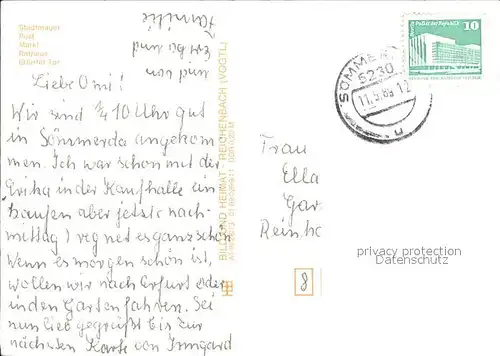 Stadtmauer
Post
Markt
Rathaus
Erfurter Tor
Liebe Omi!
Wir sind ¼ 10 Uhr gut
in Sömmerda angekom
men. Ich war schon mit der
Erika in der Kaufhalle ein
kaufen aber jetzt (nach-
mittag) regnet es ganz schön
Wenn es morgen schön ist,
wollen wir nach Erfurt oder
in den Garten fahren. Sei
nun lieb gegrüßt bis zur
nächsten Karte von Irmgard
und von
und
Familie
BILD UND HEIMAT REICHENBACH (VOGTL)
SÖMMER
5230
11.5.83.12
10
Frau
Ella
Gar
Reinh
privacy protection
Datenschutz
8